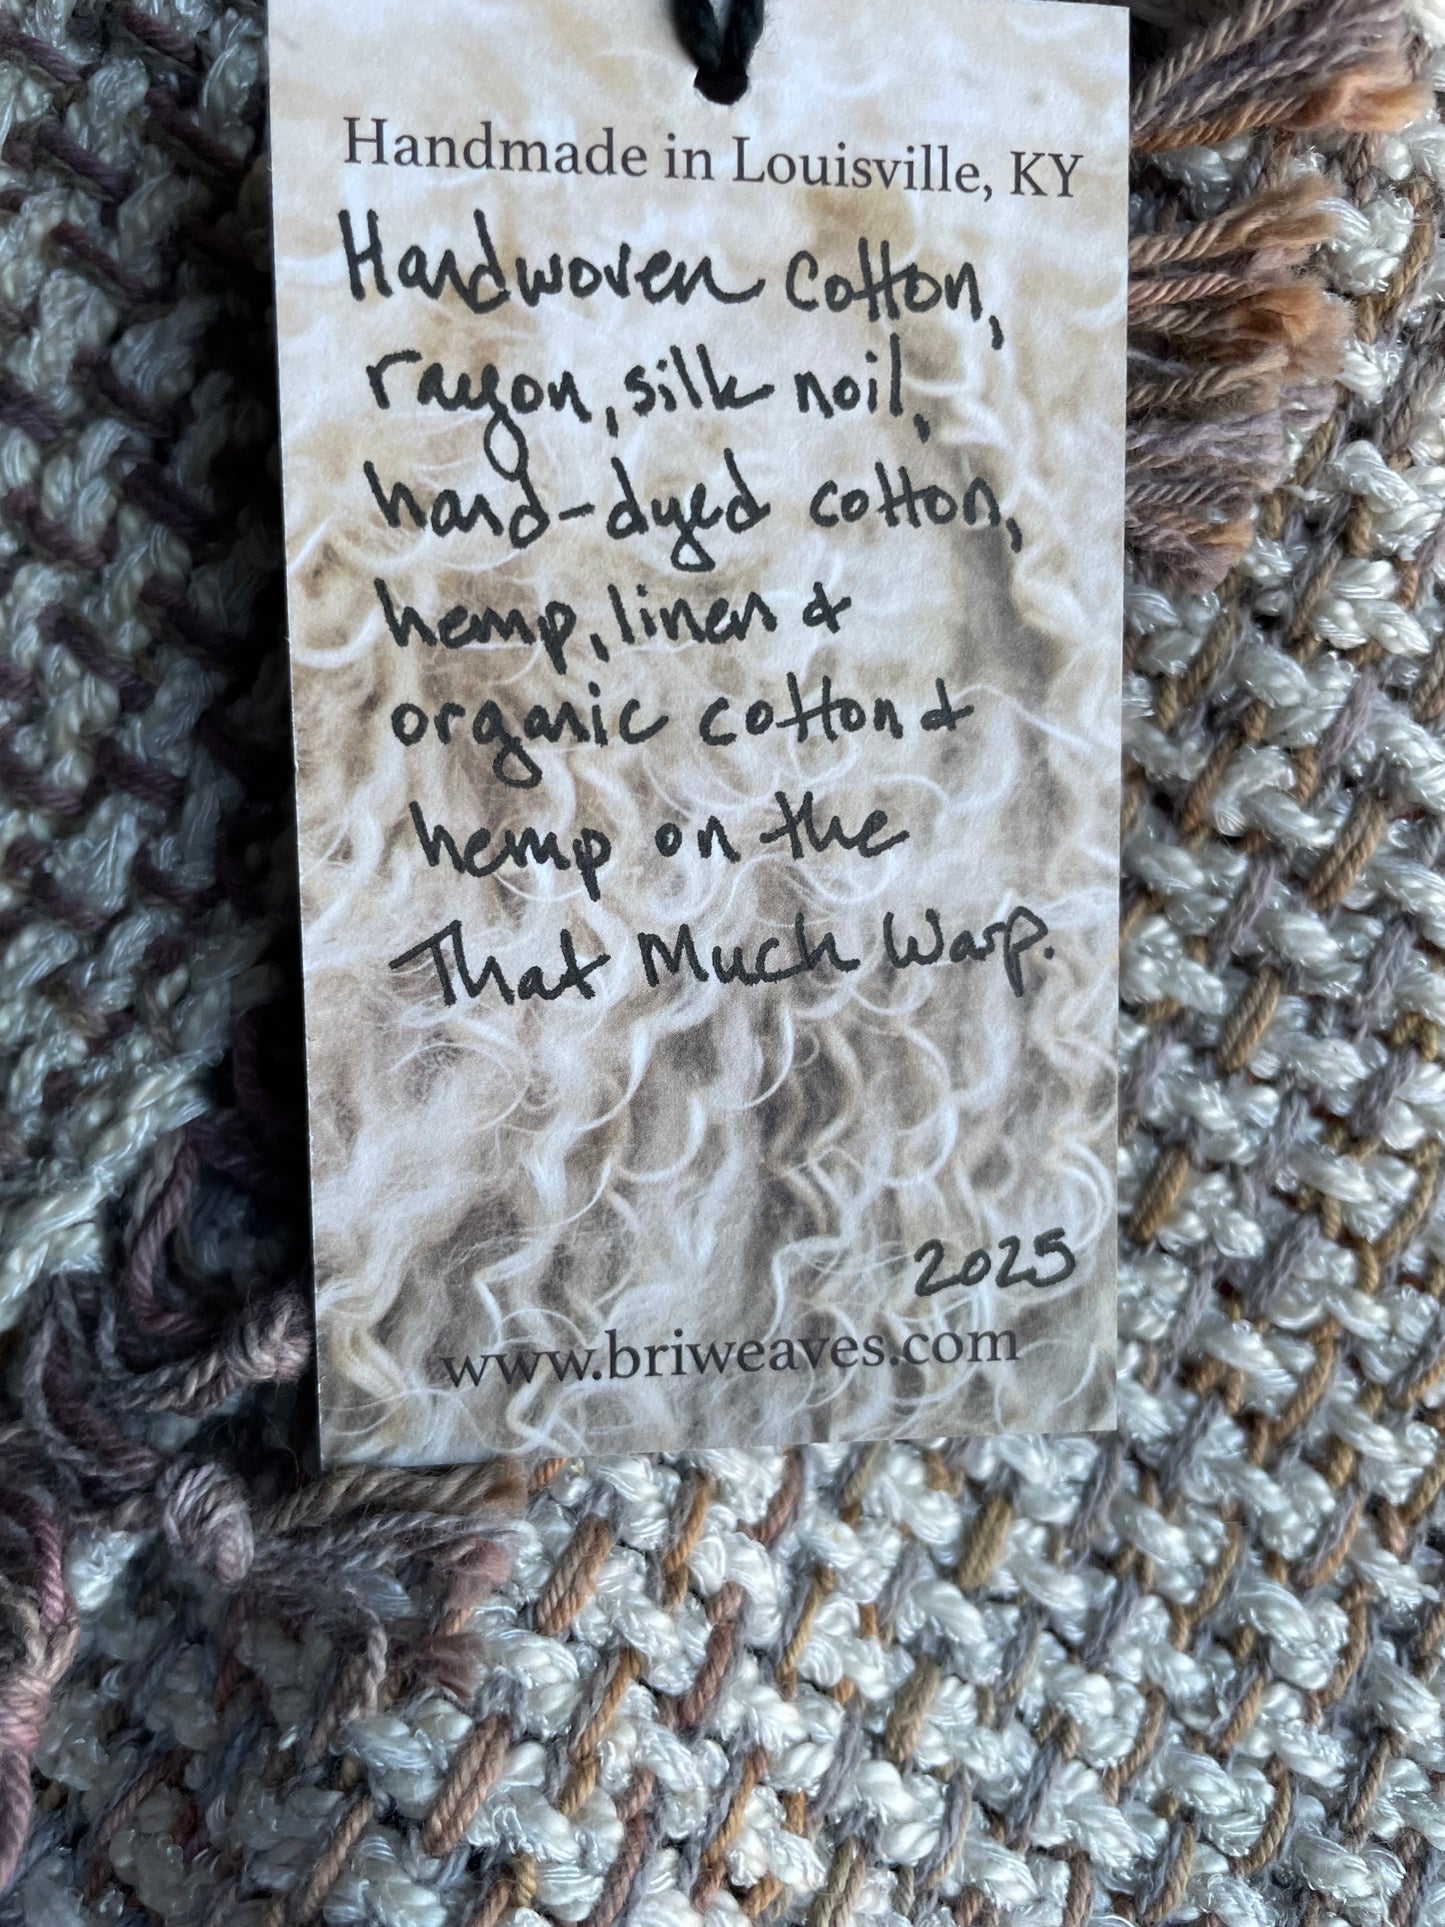 Handmade in Louisville, KY
Handwoven cotton,
rayon, silk noil,
hand-dyed cotton,
hemp, linen &
organic cotton &
hemp on the
That Much Warp.
2025
www.briweaves.com